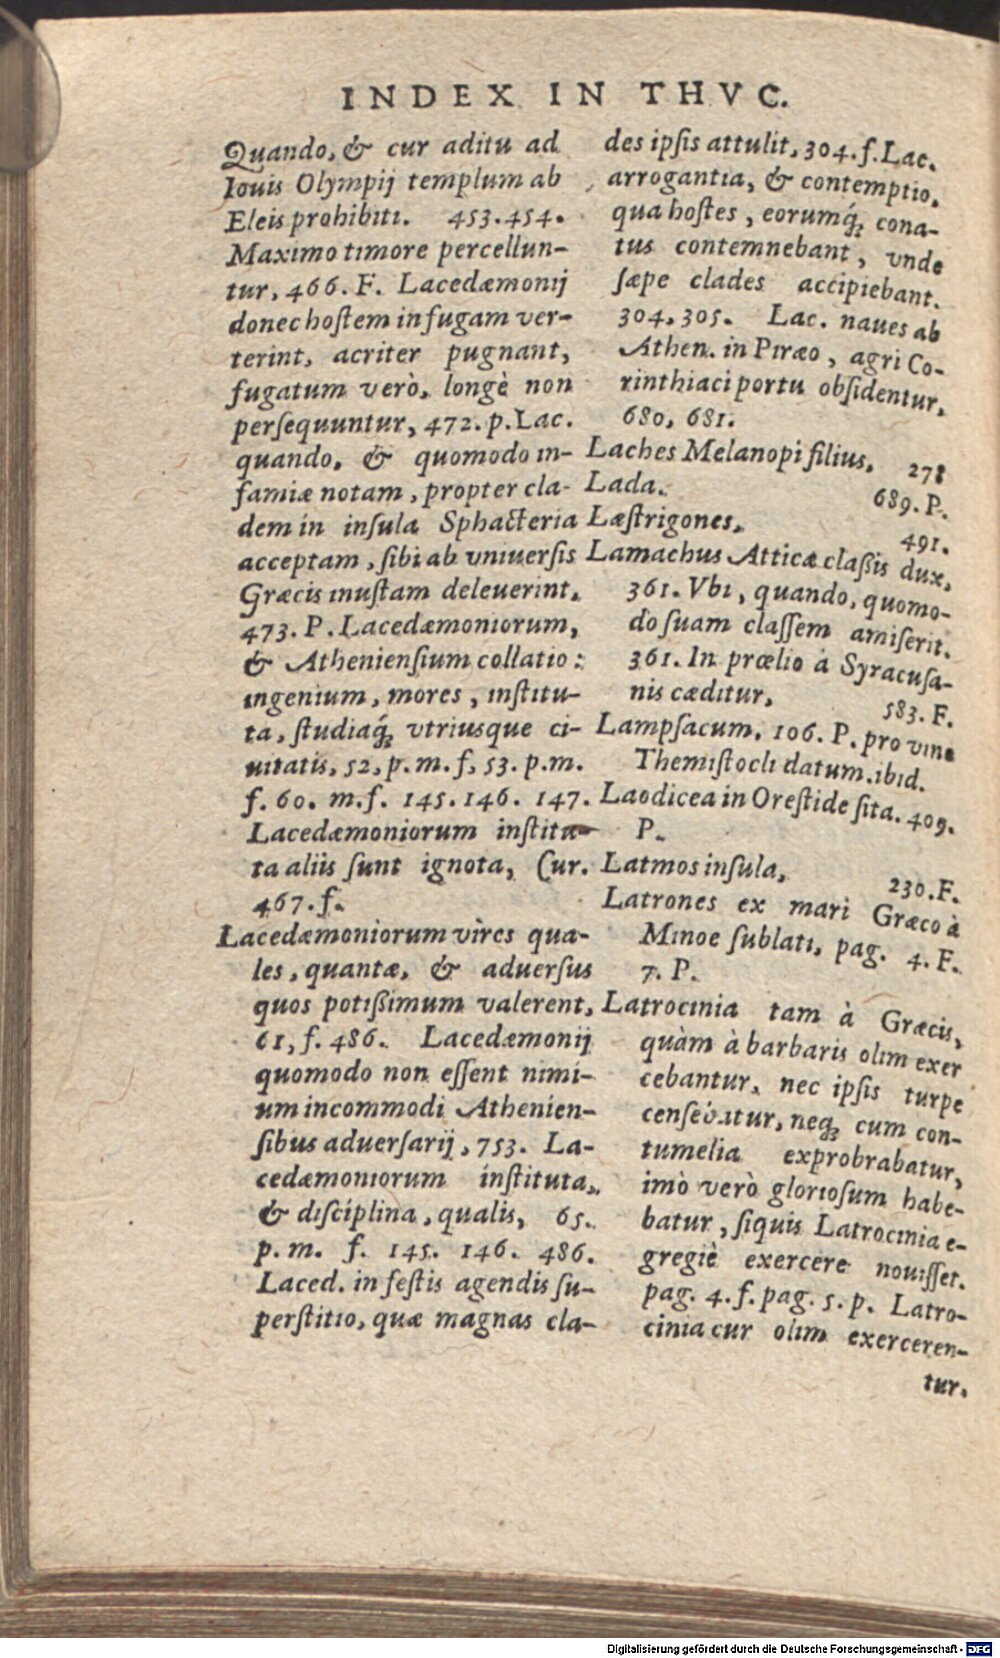 INDEX IN THVC.
Quando, & cur aditu ad
Iouis Olympij templum ab
Eleis prohibiti. 453.454.
Maximo timore percellun-
tur, 466. F. Lacedæmonij
donec hostem in fugam ver-
terint, acriter pugnant,
fugatum verò, longè non
persequuntur, 472. p. Lac.
quando, & quomodo in-
famiæ notam, propter cla-
dem in insula Sphacteria
acceptam, sibi ab vniuersis
Græcis inustam deleuerint,
473. P. Lacedæmoniorum,
& Atheniensium collatio:
ingenium, mores, institu-
ta, studiaq́ꝫ vtriusque ci-
uitatis, 52, p. m. f, 53. p. m.
f. 60. m. f. 145. 146. 147.
Lacedæmoniorum institu-
ta aliis sunt ignota, Cur.
467. f.
Lacedæmoniorum vires qua-
les, quantæ, & aduersus
quos potißimum valerent,
61, f. 486. Lacedæmonij
quomodo non essent nimi-
um incommodi Athenien-
sibus aduersarij, 753. La-
cedæmoniorum instituta,
& disciplina, qualis, 65.
p. m. f. 145. 146. 486.
Laced. in festis agendis su-
perstitio, quæ magnas cla-
des ipsis attulit, 304. f. Lac.
arrogantia, & contemptio,
qua hostes, eorumq́ꝫ cona-
tus contemnebant, vnde
sæpe clades accipiebant.
304, 305. Lac. naues ab
Athen. in Piræo, agri Co-
rinthiaci portu obsidentur,
680, 681.
Laches Melanopi filius, 278
Lada. 689. P.
Læstrigones, 491.
Lamachus Atticæ claßis dux,
361. Vbi, quando, quomo-
do suam classem amiserit.
361. In prœlio à Syracusa-
nis cæditur, 583. F.
Lampsacum, 106. P. pro vino
Themistocli datum. ibid.
Laodicea in Orestide sita. 409.
P.
Latmos insula, 230. F.
Latrones ex mari Græco à
Minoe sublati, pag. 4. F.
7. P.
Latrocinia tam à Græcis,
quàm à barbaris olim exer
cebantur, nec ipsis turpe
censebatur, neqꝫ cum con-
tumelia exprobrabatur,
imò verò gloriosum habe-
batur, siquis Latrocinia e-
gregiè exercere nouisset.
pag. 4. f. pag. 5. p. Latro-
cinia cur olim exerceren-
tur.
Digitalisierung gefördert durch die Deutsche Forschungsgemeinschaft - DFG